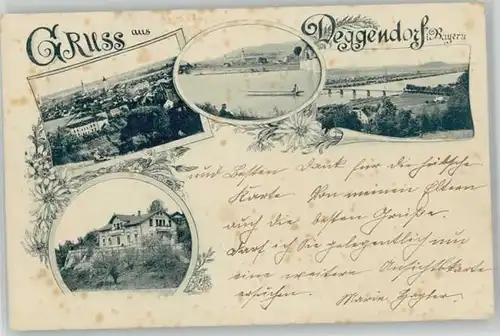 Gruss aus Deggendorf i. Bayern
und besten Dank für die hübsche
Karte. Von meinen Eltern
auch die besten Grüße.
Darf ich Sie gelegentlich um
eine weitere Ansichtskarte
ersuchen.
Marie